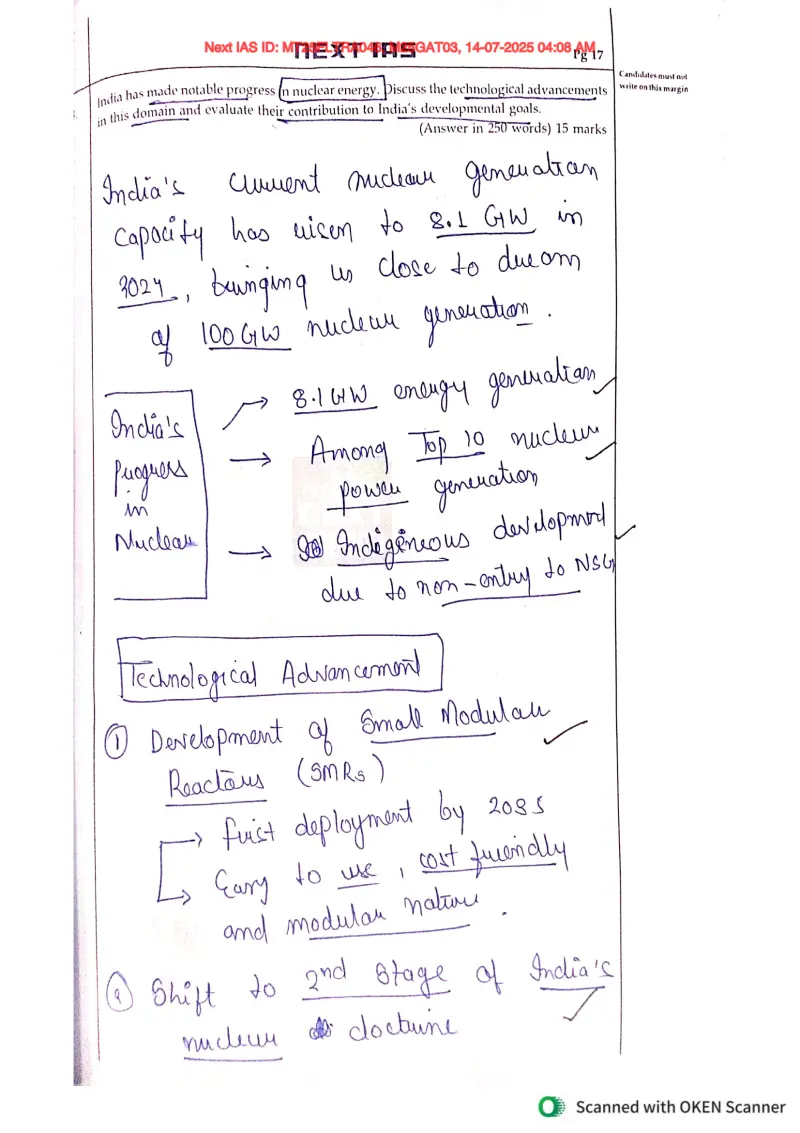 Next IAS ID: MT25ELTRA046, M25GAT03, 14-07-2025 04:08 AM
NEXT IAS
Pg 17
Candidates must not
write on this margin
India has made notable progress in nuclear energy. Discuss the technological advancements
in this domain and evaluate their contribution to India's developmental goals.
(Answer in 250 words) 15 marks
India's current nuclear generation
capacity has risen to 8.1 GW in
2024, bringing us close to dream
of 100 GW nuclear generation.
India's
Progress
in
Nuclear
→ 8.1 GW energy generation
→ Among Top 10 nuclear
power generation
→ Indigeneous development
due to non-entry to NSG
Technological Advancement
① Development of Small Modular
Reactors (SMRs)
→ first deployment by 2035
→ Easy to use, cost friendly
and modular nature.
② Shift to 2nd Stage of India's
nuclear doctrine
Scanned with OKEN Scanner